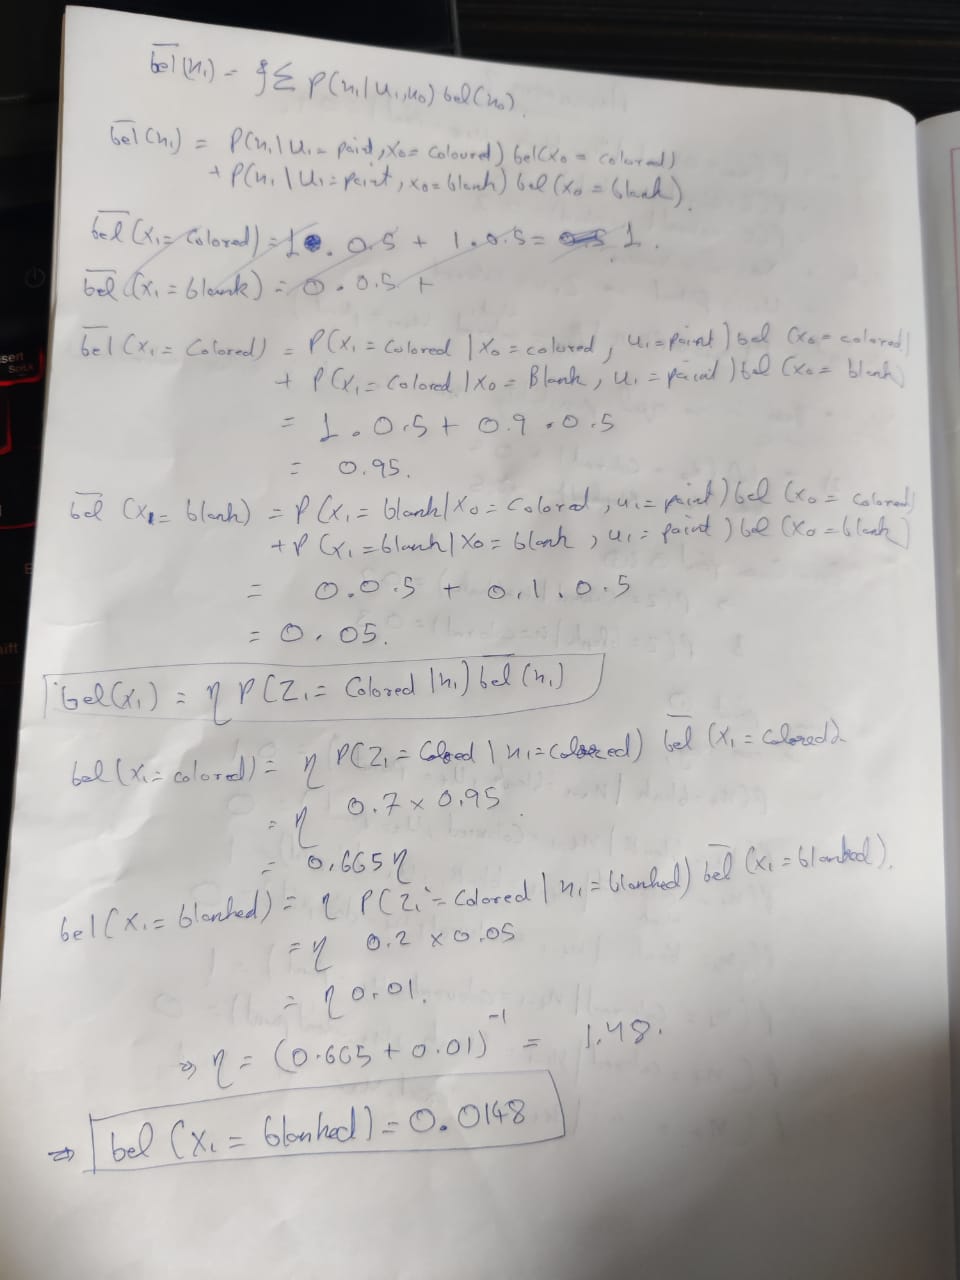 bel̅(x₁) = ∫Σ P(x₁|u₁,x₀) bel(x₀).
bel̅(x₁) = P(x₁|U₁= paint, X₀= Coloured) bel(X₀ = colored)
+ P(x₁|U₁= paint, x₀= blank) bel(X₀ = blank).
bel̅(X₁= Colored) = 1. 0.5 + 1.0.5 = 1.
bel̅(X₁ = blank) = 0. 0.5 +
bel̅(X₁ = Colored) = P(X₁ = Colored | X₀ = colored, U₁ = paint) bel (X₀ = colored)
+ P(X₁ = Colored | X₀ = Blank, U₁ = paint) bel (X₀ = blank)
= 1. 0.5 + 0.9 . 0.5
= 0.95.
bel̅ (X₁ = blank) = P(X₁ = blank | X₀ = Colored, U₁ = paint) bel (X₀ = Colored)
+ P(X₁ = blank | X₀ = blank, U₁ = paint) bel (X₀ = blank)
= 0.0.5 + 0.1.0.5
= 0.05.
bel(X₁) = η P(Z₁ = Colored | x₁) bel̅(x₁)
bel(X₁ = colored) = η P(Z₁ = Colored | x₁ = colored) bel̅ (X₁ = Colored).
= η 0.7 × 0.95
= 0.665 η
bel(X₁ = blanked) = η P(Z₁ = Colored | x₁ = blanked) bel̅ (X₁ = blanked).
= η 0.2 × 0.05
= η 0.01.
⇒ η = (0.665 + 0.01)⁻¹ = 1.48.
⇒ bel (X₁ = blanked) = 0.0148